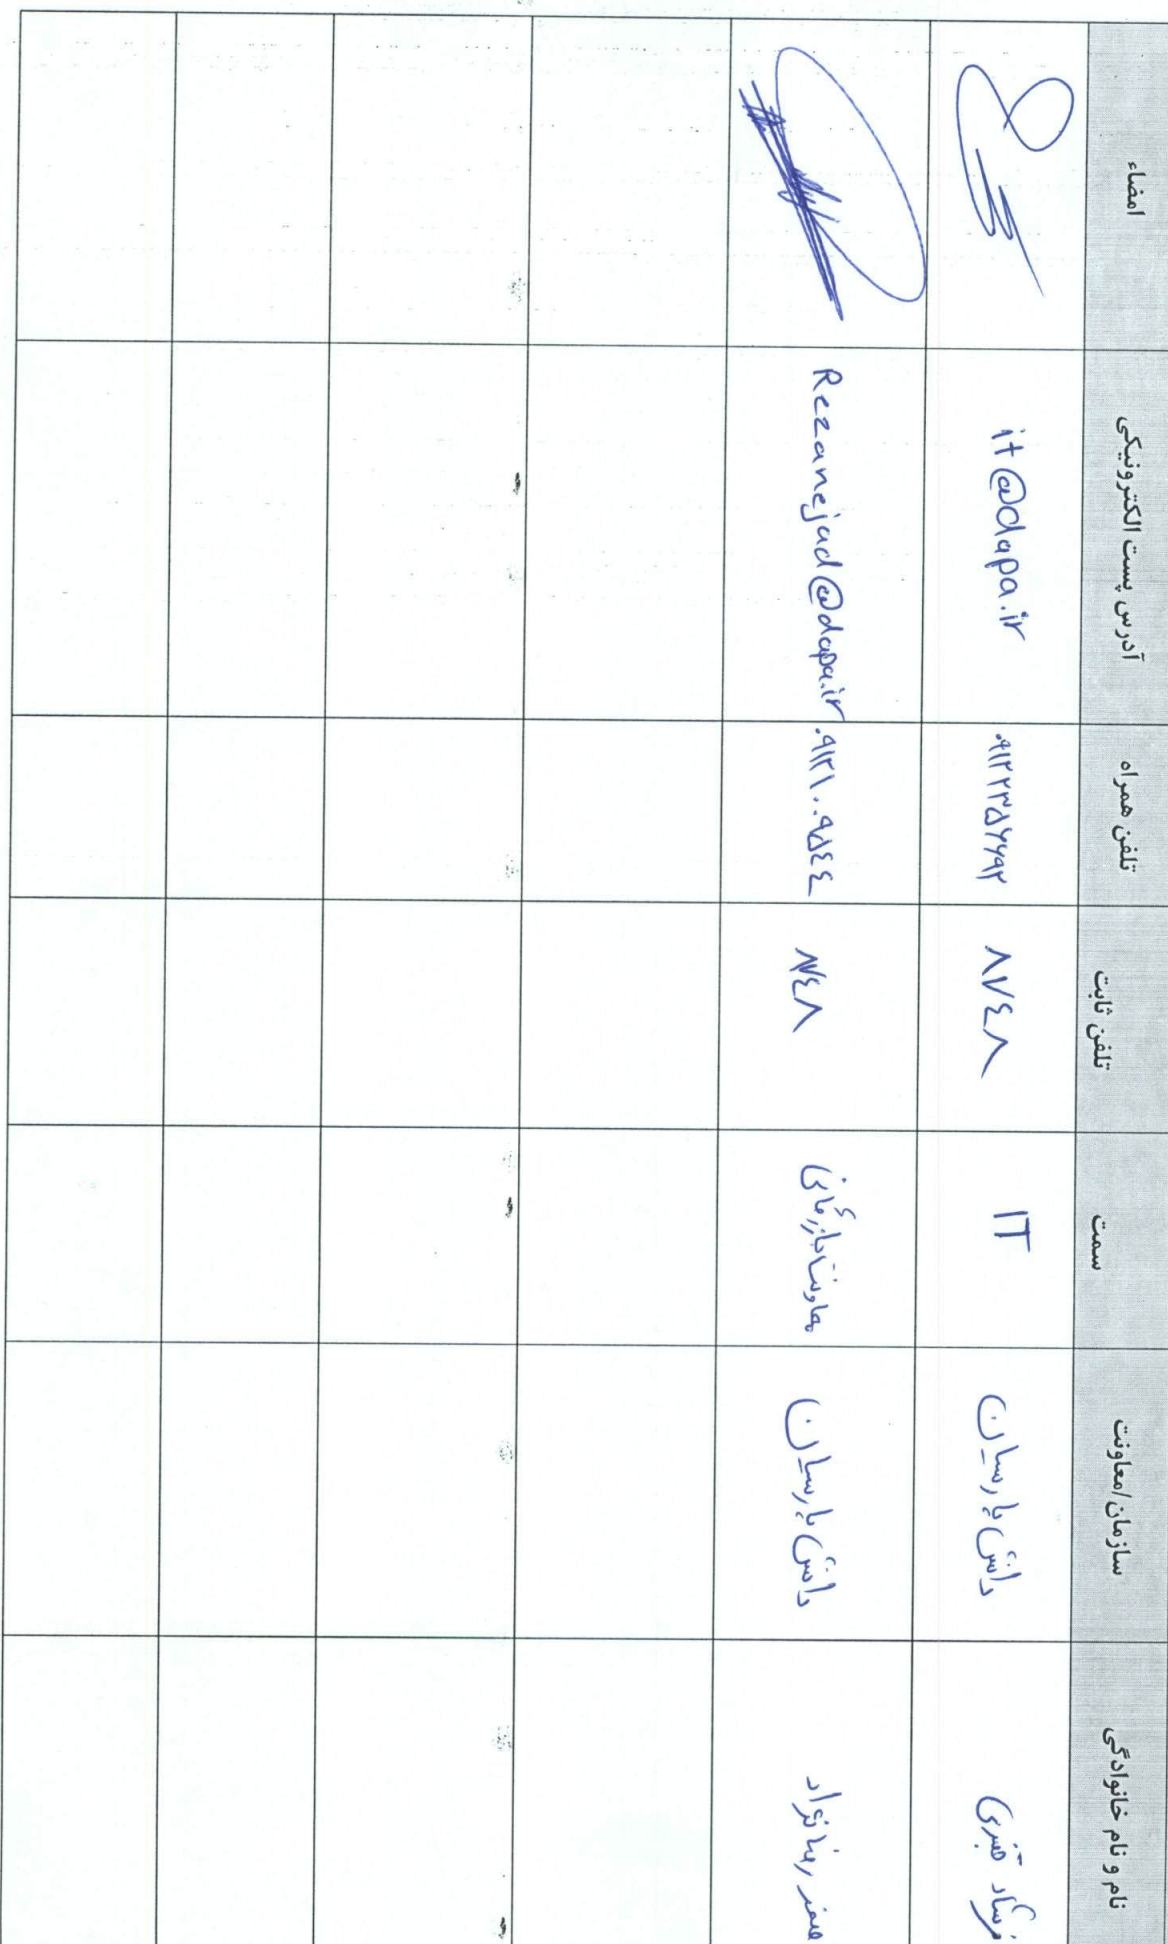 نام و نام خانوادگی	سازمان/معاونت	سمت	تلفن ثابت	تلفن همراه	آدرس پست الکترونیکی	امضاء
فرشاد قنبری	دانش پارسیان	IT	۸۷٤۸	۰۹۱۲۲۳۵۷۶۹۲	it@dapa.ir
رضا نژاد	دانش پارسیان	معاونت بازرگانی	۸۷٤۸	۰۹۱۲۱۰۰۹۵٤٤	Rezanejad@dapa.ir